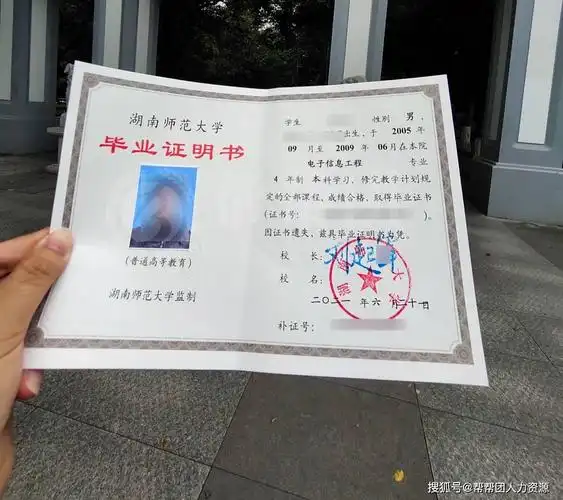 湖南师范大学
毕业证明书
(普通高等教育)
湖南师范大学监制
学生 性别 男,
出生,于 2005 年
09 月至 2009 年 06月在本院
电子信息工程 专业
4 年制 本科学习,修完教学计划规
定的全部课程,成绩合格,取得毕业证书
(证书号: )。
因证书遗失,兹具毕业证明书为凭。
校 长:
校 名:
二〇二一 年 六 月二十一日
补证号:
搜狐号@帮帮团人力资源